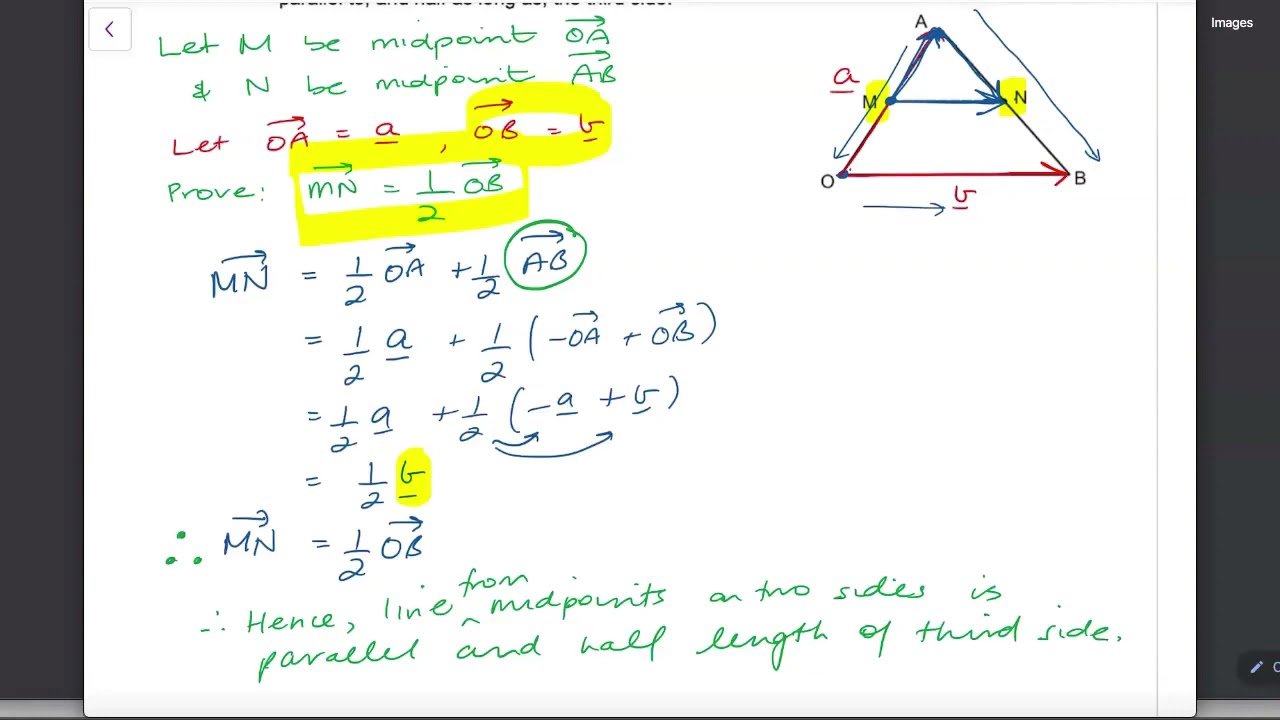 parallel to, and half as long as, the third side.
Images
Let M be midpoint \overrightarrow{OA}
& N be midpoint \overrightarrow{AB}
Let \overrightarrow{OA} = a, \overrightarrow{OB} = b
Prove: \overrightarrow{MN} = \frac{1}{2} \overrightarrow{OB}
\overrightarrow{MN} = \frac{1}{2} \overrightarrow{OA} + \frac{1}{2} \overrightarrow{AB}
= \frac{1}{2} a + \frac{1}{2} (-\overrightarrow{OA} + \overrightarrow{OB})
= \frac{1}{2} a + \frac{1}{2} (-a + b)
= \frac{1}{2} b
∴ \overrightarrow{MN} = \frac{1}{2} \overrightarrow{OB}
∴ Hence, line from midpoints on two sides is
parallel and half length of third side.
A
a
M
N
O
B
b